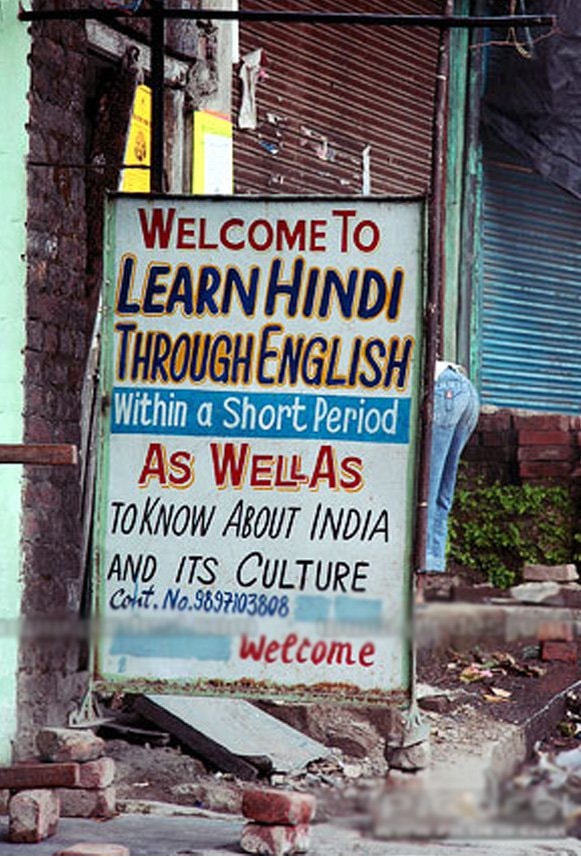 WELCOME TO
LEARN HINDI
THROUGH ENGLISH
Within a Short Period
AS WELL AS
TO KNOW ABOUT INDIA
AND ITS CULTURE
Cont. No. 9897103808
Welcome